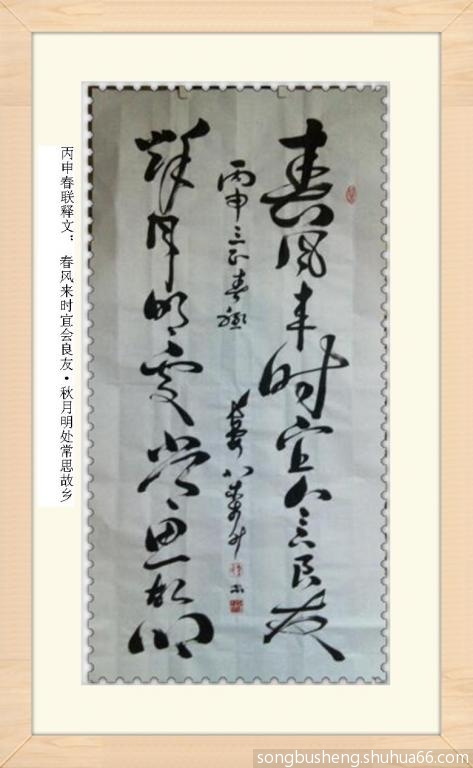 春风来时宜会良友
丙申三正春联
秋月明处常思故乡
丙申春联释文：春风来时宜会良友·秋月明处常思故乡
songbusheng.shuhua66.com